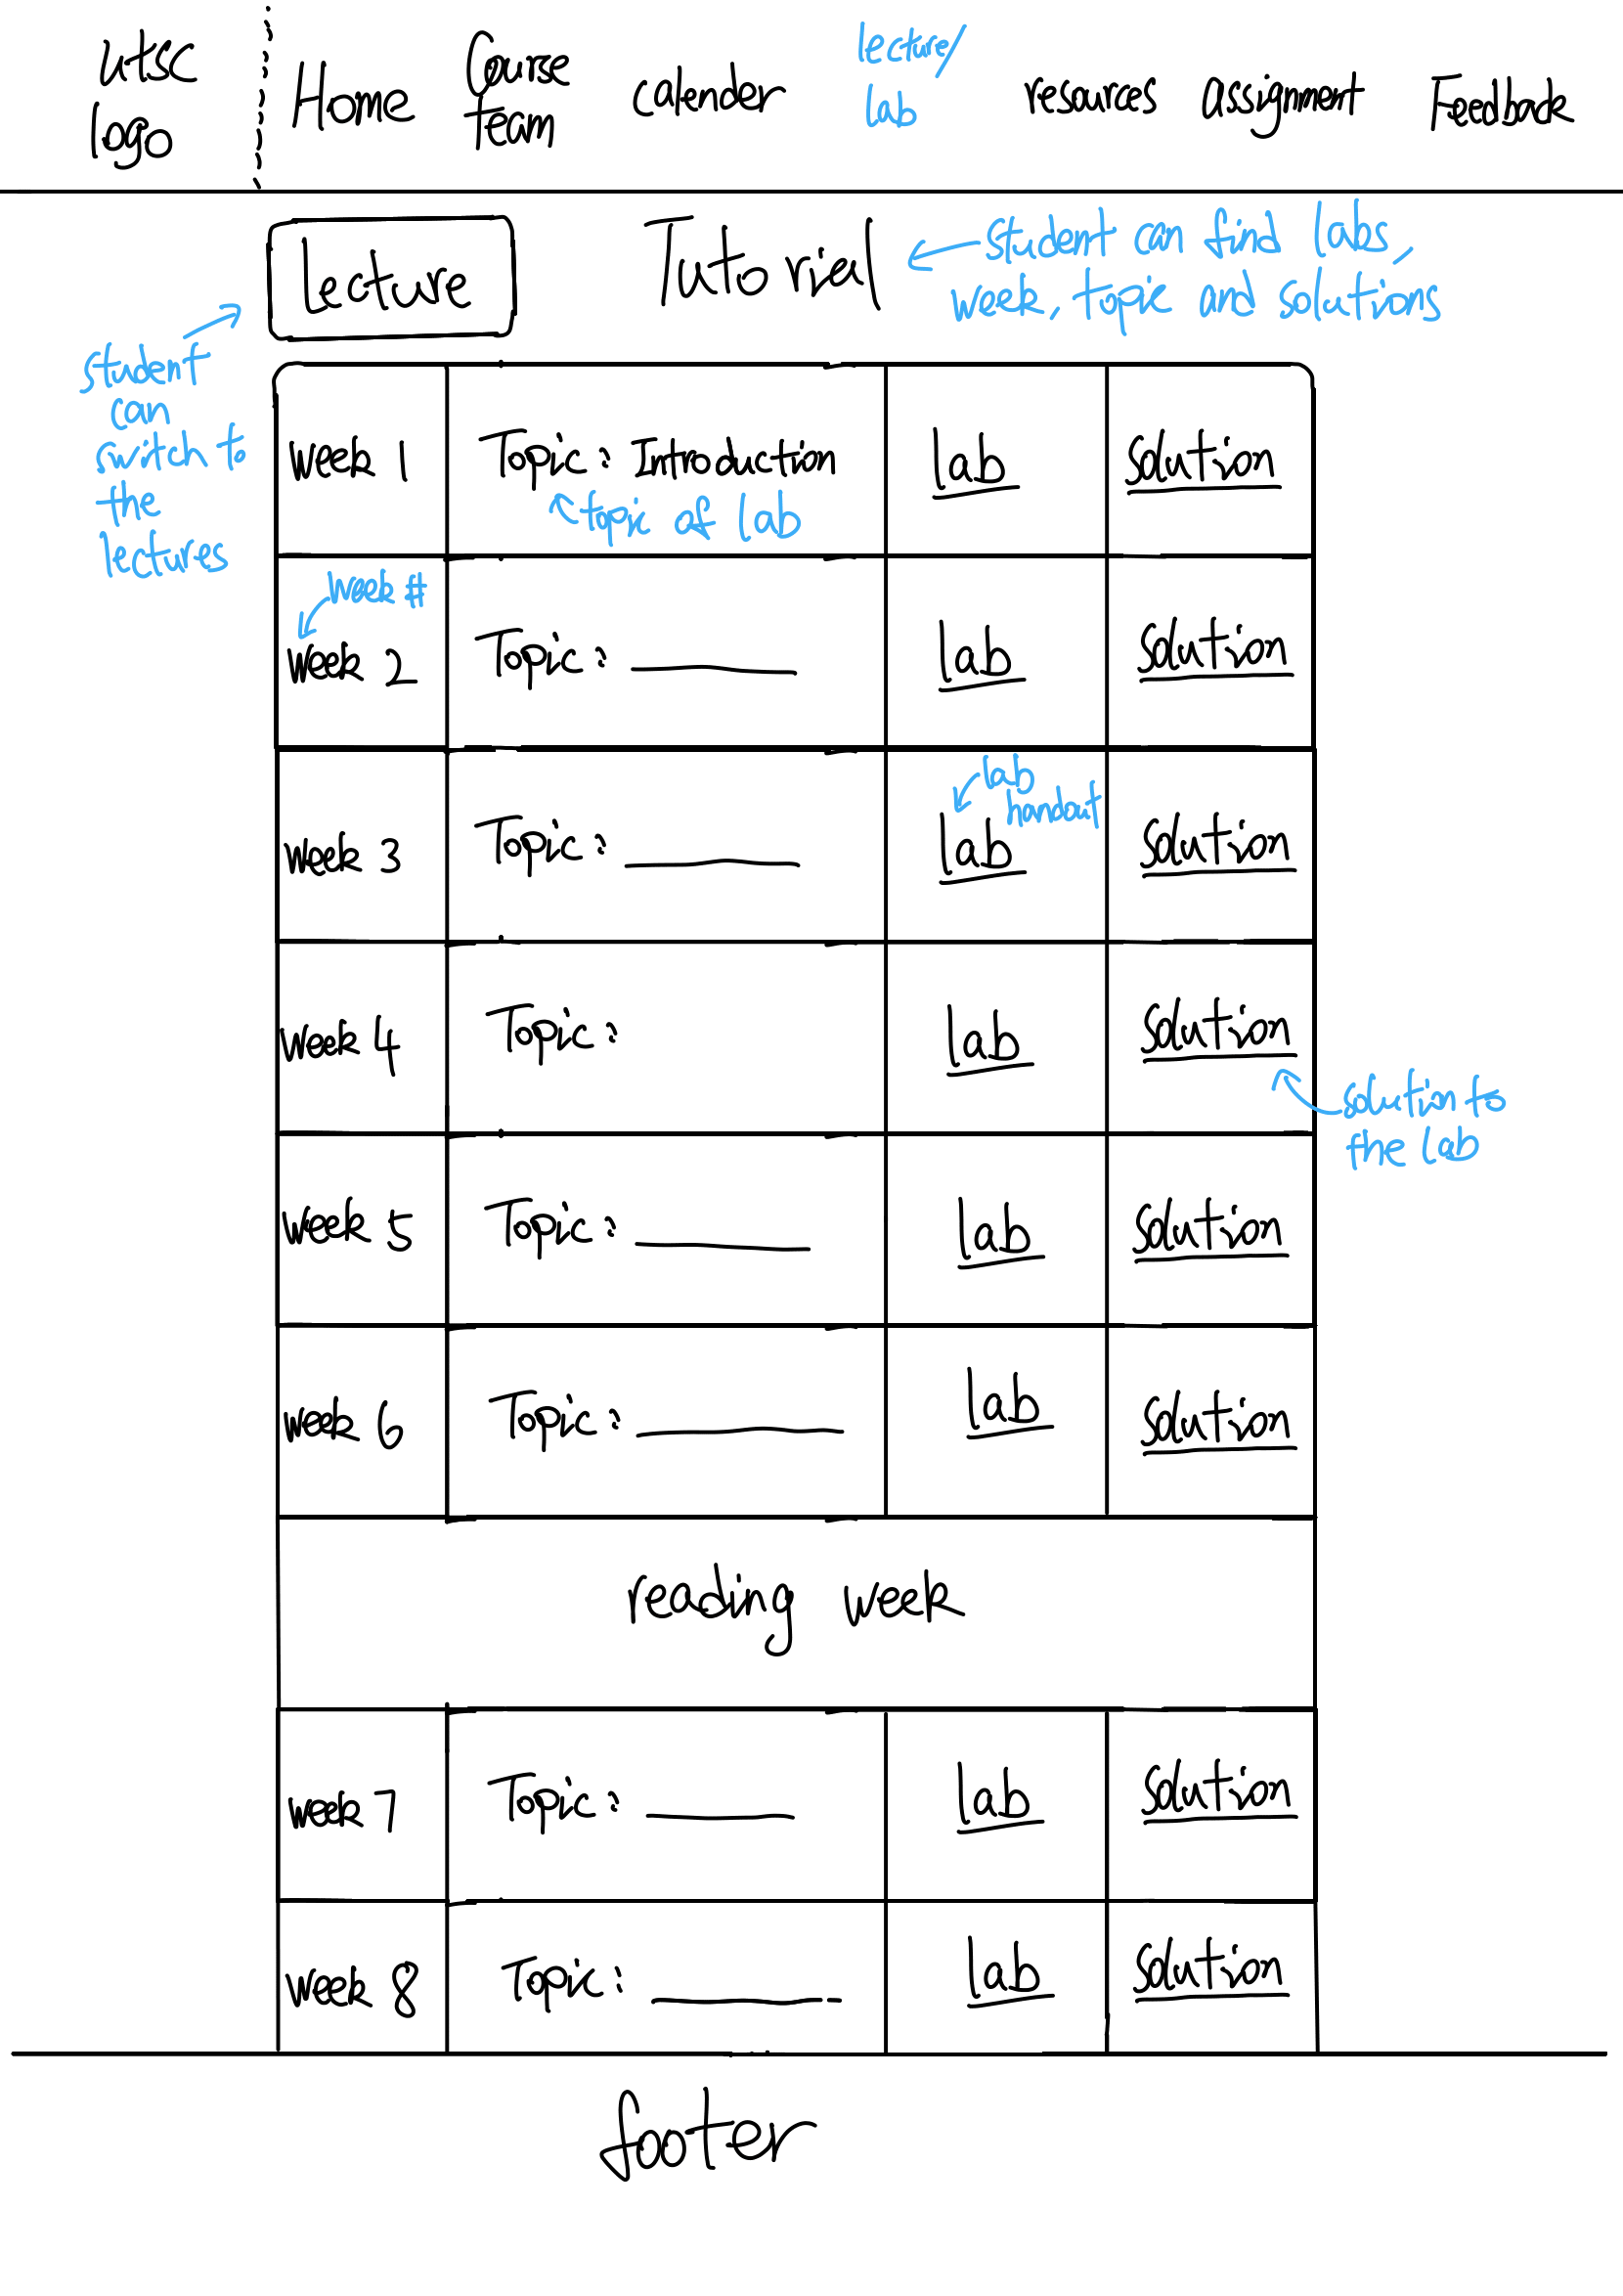 UTSC
logo
Home
Course
team
calender
lecture/
lab
resources
assignment
Feedback
Lecture
Tutorial
student can find labs,
week, topic and solutions
student
can
switch to
the
lectures
week 1
Topic: Introduction
lab
solution
topic of lab
week #
week 2
Topic:
lab
solution
lab
handout
week 3
Topic:
lab
solution
week 4
Topic:
lab
solution
solution to
the lab
week 5
Topic:
lab
solution
week 6
Topic:
lab
solution
reading week
week 7
Topic:
lab
solution
week 8
Topic:
lab
solution
footer